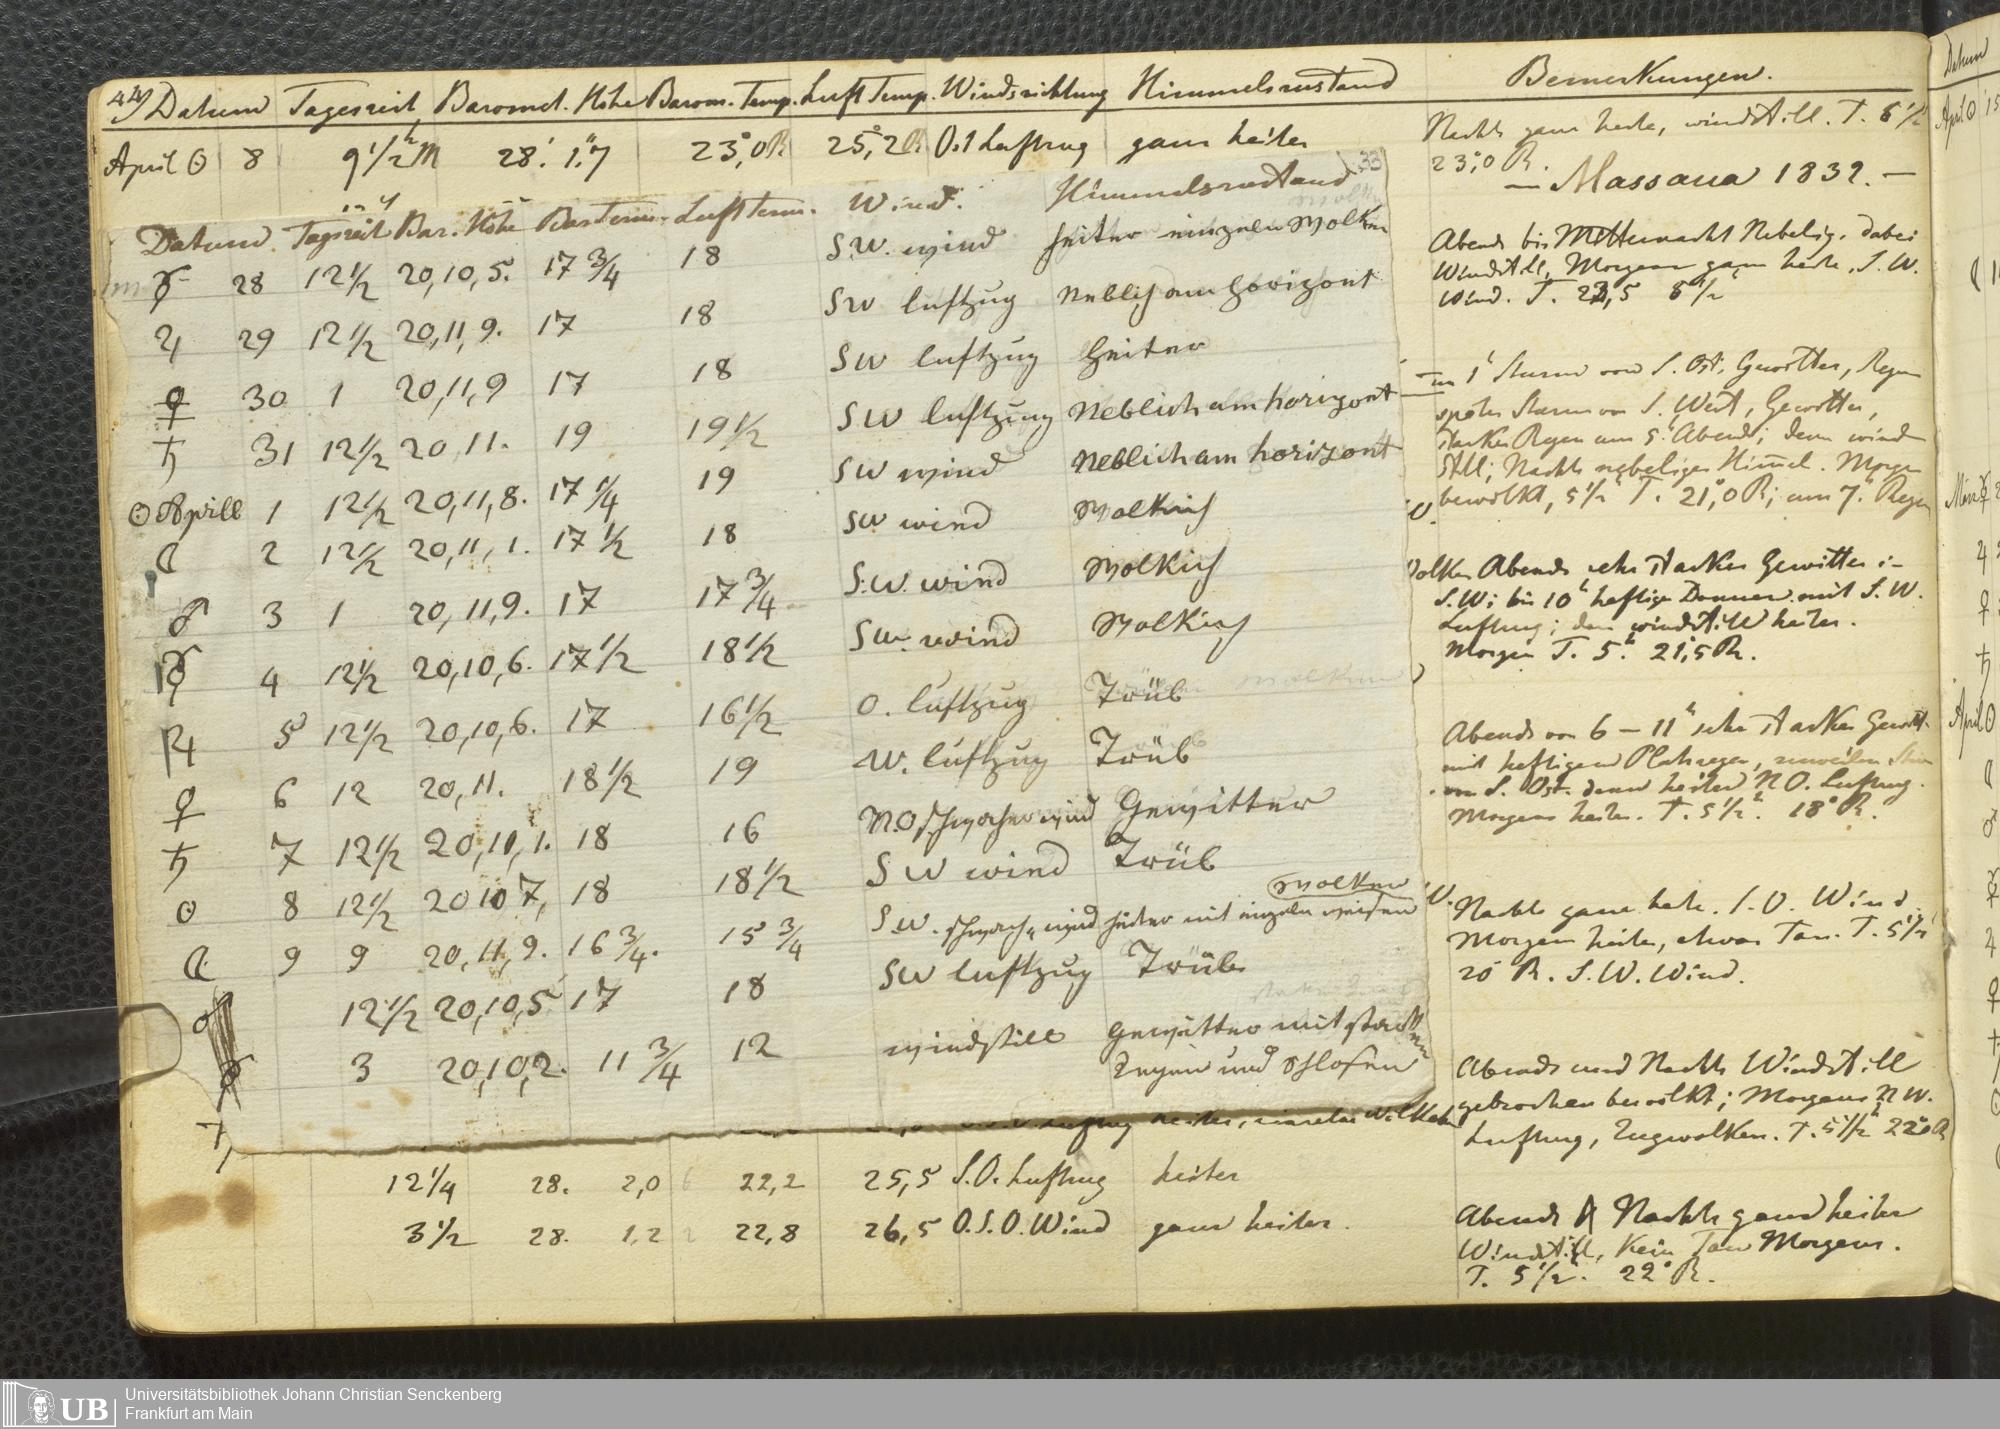 44) Datum Tageszeit Baromet. Höhe Barom. Temp. Luft Temp. Windsrichtung Himmelszustand Bemerkungen.
April ☉ 8 9 1/2 h M 28.' 1."7 23,°0 R 25,°2 R O.S Luftzug ganz heiter
Nachts ganz heiter, windstill. T. 5 1/2
23,°0 R.
— Massaua 1832. —
33
Datum Tagszeit Bar. Höhe Bar. term. Luft term. Wind. Himmelszustand
☿ 28 12 1/2 20,10,5. 17 3/4 18 S.W. wind heiter einzeln Wolken
♃ 29 12 1/2 20,11,9. 17 18 SW luftzug neblich am horizont
♀ 30 1 20,11,9 17 18 SW luftzug heiter
♄ 31 12 1/2 20,11. 19 19 1/2 SW luftzung neblich am horizont
☉ Aprill 1 12 1/2 20,11,8. 17 1/4 19 SW wind neblich am horizont
☾ 2 12 1/2 20,11,1. 17 1/2 18 SW wind Wolkich
♂ 3 1 20,11,9. 17 17 3/4 S.W. wind Wolkich
☿ 4 12 1/2 20,10,6. 17 1/2 18 1/2 SW. wind Wolkich
♃ 5 12 1/2 20,10,6. 17 16 1/2 O. luftzug Trüb
♀ 6 12 20,11. 18 1/2 19 W. luftzug Trüb
♄ 7 12 1/2 20,11,1. 18 16 N.O schwacher wind Gewitter
☉ 8 12 1/2 20 10 7, 18 18 1/2 SW wind Trüb
☾ 9 9 20,11,9. 16 3/4. 15 3/4 S.W. schwach wind heiter mit einzeln weisen Wolken
12 1/2 20,10,5 17 18 SW luftzug Trüb
3 20,10,2. 11 3/4 12 windstill Gewitter mit starken
Regen und Schlosen
Luftzug heiter, einzelne Wolken
12 1/4 28. 2,0 22,2 25,5 S.O. Luftzug heiter
3 1/2 28. 1,2 22,8 26,5 O.S.O. Wind ganz heiter.
Abends bis Mitternacht Nebelig, dabei
Windstill, Morgens ganz heiter, S.W.
Wind. T. 5 1/2
um 1 h Sturm von S. Ost, Gewitter, Regen
später Sturm von S. West, Gewitter,
starker Regen um 5 h Abends; dann wind
still; Nachts nebeliger Himmel. Morgen
bewölkt, 5 1/2 h T. 21,°0 R; um 7 h Regen
Abends sehr starkes Gewitter in
S.W; bis 10 h heftiger Donner mit S.W.
Luftzug; dann windstill heiter.
Morgen T. 5 h. 21,5 R.
Abends von 6 – 11 h sehr starkes Gewitt.
mit heftigem Platzregen, zuweilen
von S. Ost. dann heiter N O. Luftzug.
Morgens heiter. T. 5 1/2 h. 18° R.
Nachts ganz heiter. S.O. Wind
Morgens heiter, etwas Tau. T. 5 1/2
20 R. S.W. Wind.
Abends und Nachts Windstill
gebrochen bewölkt; Morgens N W.
Luftzug, Zugwolken. T. 5 1/2 h 22° R
Abends & Nachts ganz heiter
Windstill, kein Tau Morgens.
T. 5 1/2. 22° R.
Datum
April ☉ 15
April ☉
UB
Universitätsbibliothek Johann Christian Senckenberg
Frankfurt am Main